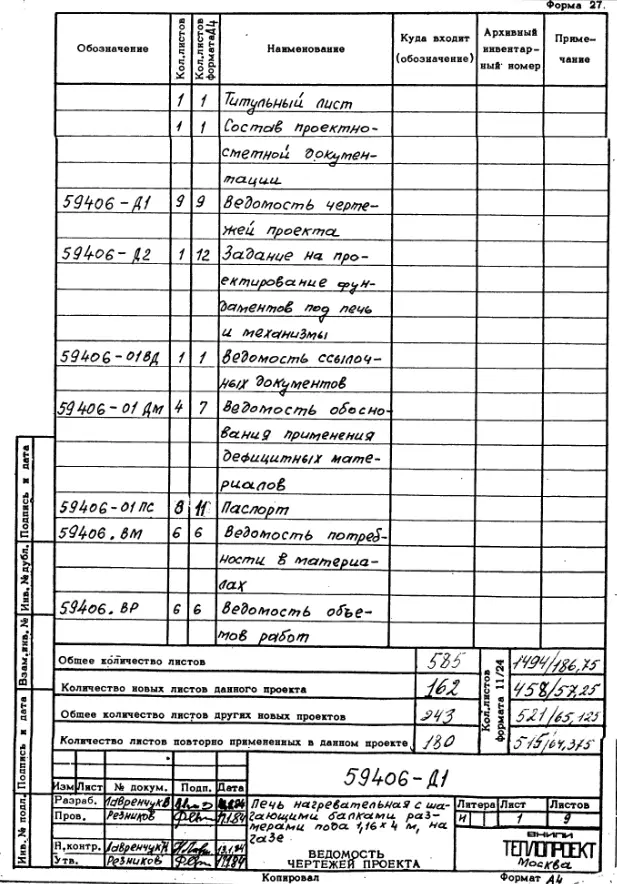 Форма 27.
Обозначение Кол.листов Кол.листов формата А4 Наименование Куда входит (обозначение) Архивный инвентар-ный номер Приме-чание
1 1 Титульный лист
1 1 Состав проектно-
сметной докумен-
тации
59406-Д1 9 9 Ведомость черте-
жей проекта
59406-Д2 1 12 Задание на про-
ектирование фун-
даментов под печь
и механизмы
59406-01ВД 1 1 Ведомость ссылоч-
ных документов
59406-01 ДМ 4 7 Ведомость обосно-
вания применения
дефицитных мате-
риалов
59406-01ПС 8 11 Паспорт
59406.ВМ 6 6 Ведомость потреб-
ности в материа-
лах
59406.ВР 6 6 Ведомость объе-
мов работ
Общее количество листов 585 Кол.листов формата 11/24 1494/186,75
Количество новых листов данного проекта 162 458/57,25
Общее количество листов других новых проектов 243 521/65,125
Количество листов повторно примененных в данном проекте 180 515/64,375
59406-Д1
Изм Лист № докум. Подп. Дата
Разраб. Лавренчук
Пров. Резников
Н.контр. Лавренчук
Утв. Резников
Печь нагревательная с ша-
гающими балками раз-
мерами пода 1,16х4 м, на
газе
ВЕДОМОСТЬ
ЧЕРТЕЖЕЙ ПРОЕКТА
Литера Лист Листов
И 1 9
ВНИПИ
ТЕПЛОПРОЕКТ
Москва
Копировал Формат А4
Инв.№ подл. Подпись и дата Взам.инв.№ Инв.№ дубл. Подпись и дата